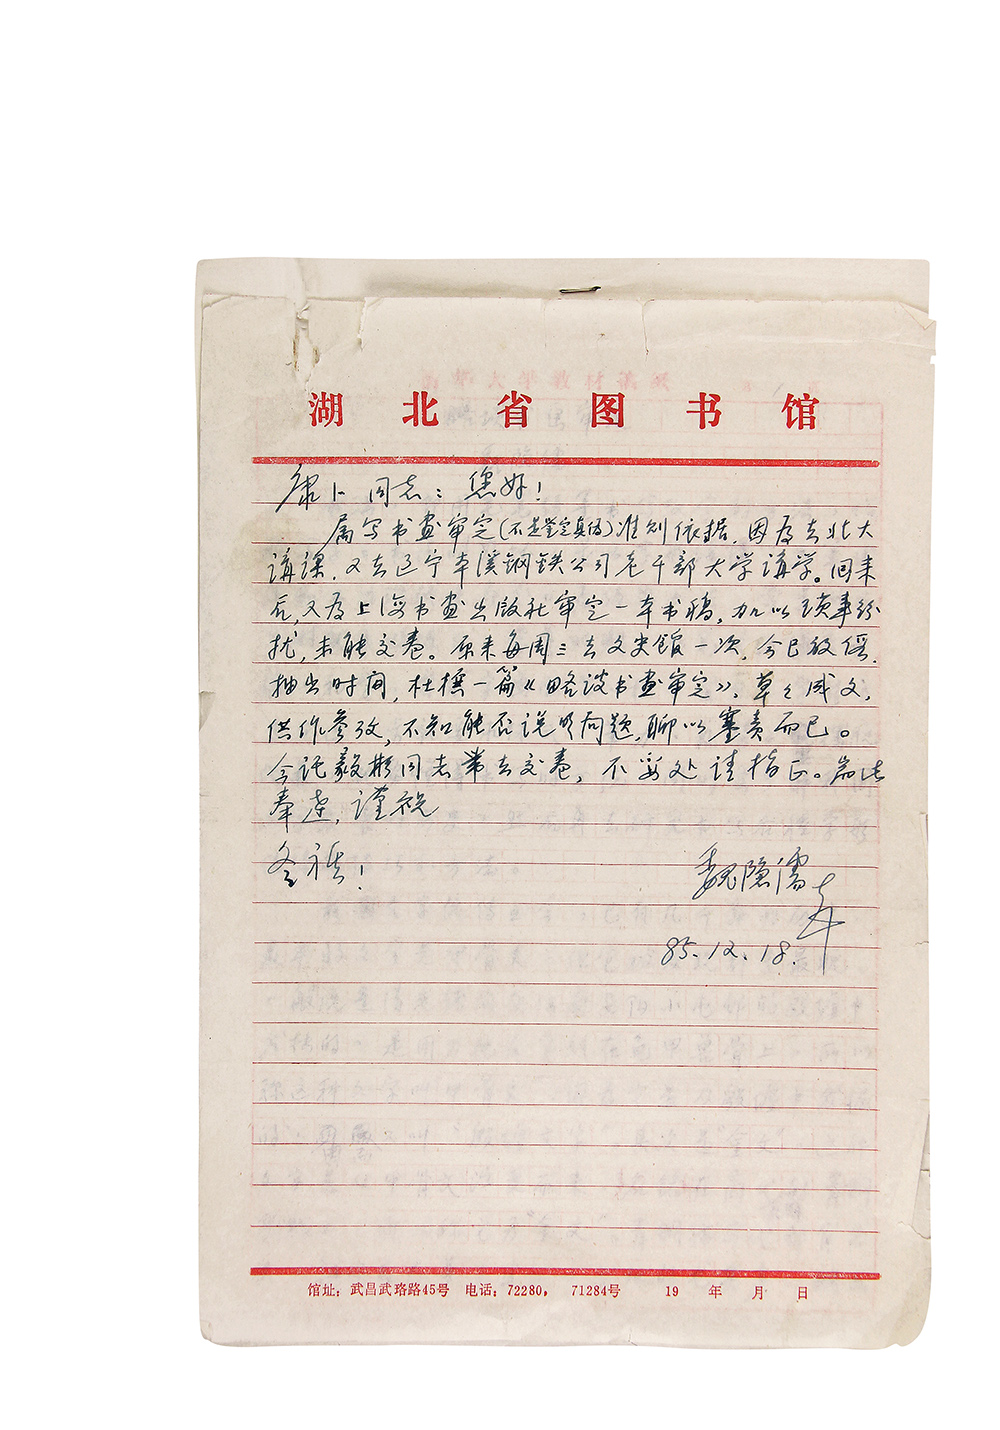 湖北省图书馆
康卜同志：您好！
属写书画审定(不是鉴定真伪)准则依据，因为去北大
讲课，又去辽宁本溪钢铁公司老干部大学讲学。回来
后，又为上海书画出版社审定一本书稿，加以琐事纷
扰，未能交卷。原来每周三去文史馆一次，今已放假，
抽出时间，杜撰一篇《略谈书画审定》，草々成文，
供作参考，不知能否说明问题，聊以塞责而已。
今託毅彬同志带去交卷，不妥处请指正。耑此
奉达，谨祝
冬祺！
魏隐儒
85.12.18.
馆址：武昌武珞路45号 电话：72280， 71284号 19 年 月 日